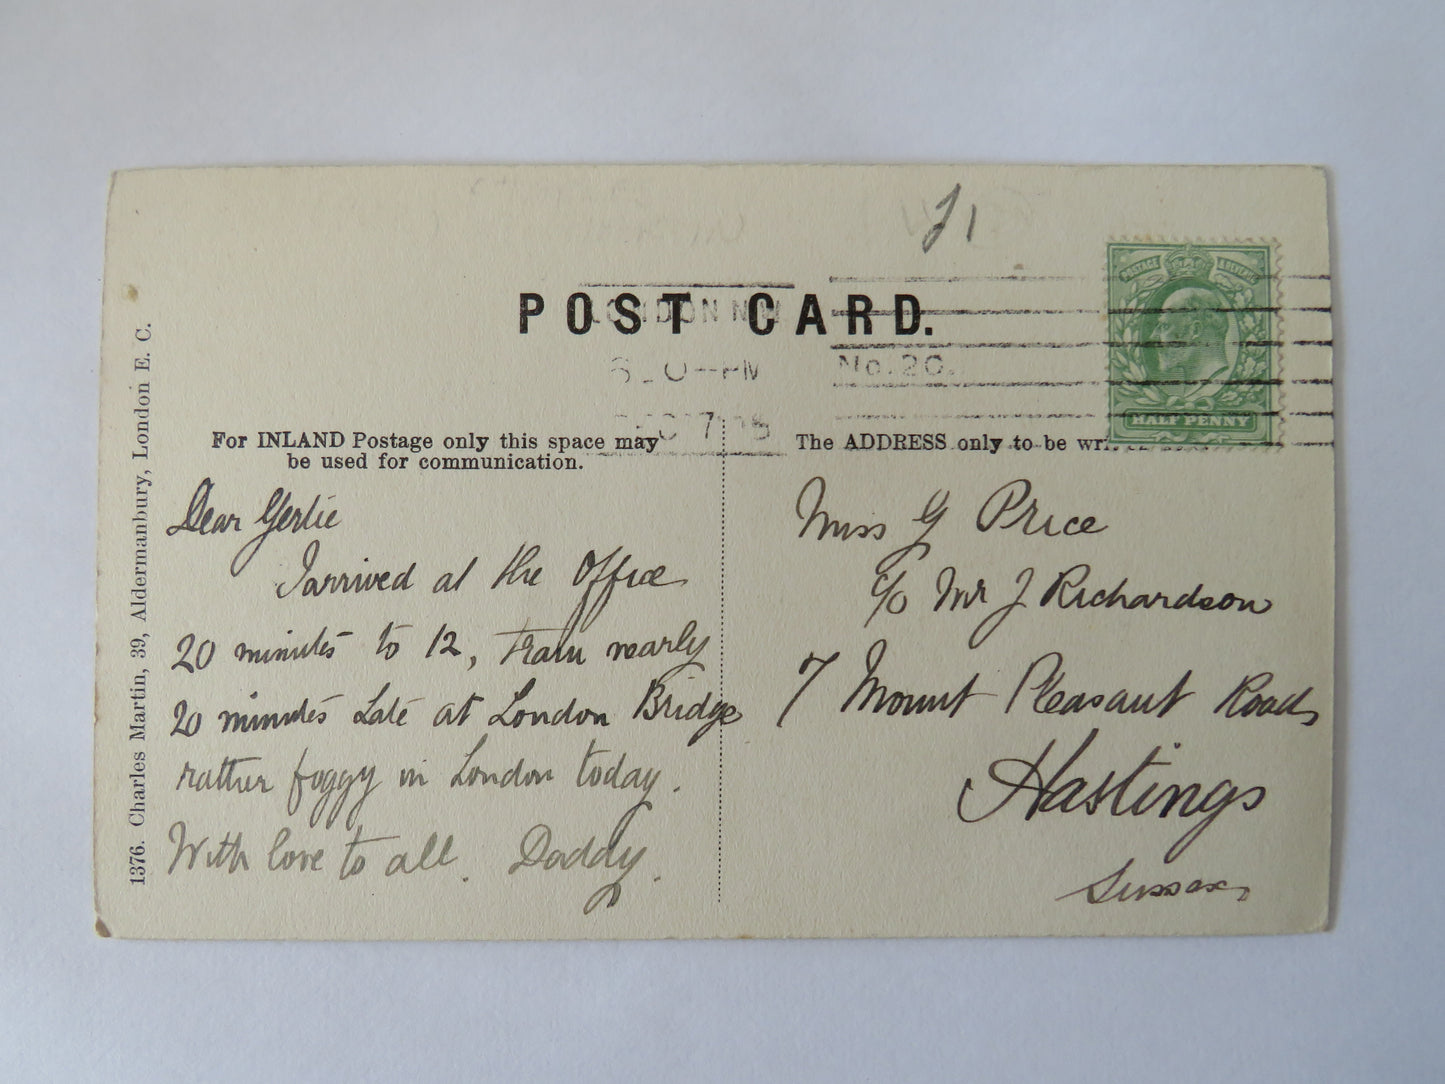 POST CARD.
LONDON N.W
No. 20.
POSTAGE & REVENUE
HALF PENNY
For INLAND Postage only this space may
be used for communication.
The ADDRESS only to be
1376. Charles Martin, 39, Aldermanbury, London E. C.
Dear Gertie
I arrived at the Office
20 minutes to 12, train nearly
20 minutes late at London Bridge
rather foggy in London today.
With love to all. Daddy.
Miss G Price
c/o Mr J Richardson
7 Mount Pleasant Road,
Hastings
Sussex,